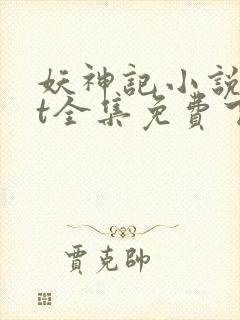 妖神記小說
t全集免費
賈克帥